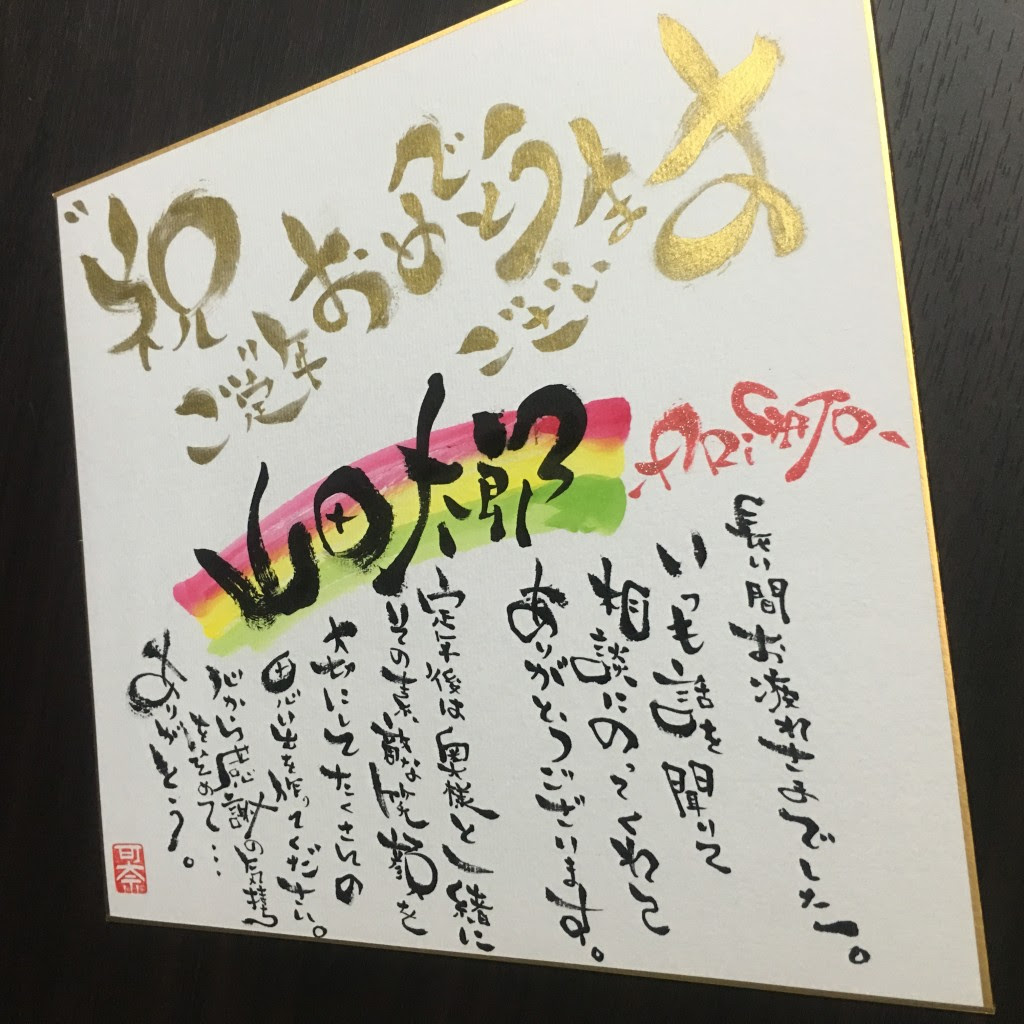 祝
ご定年
おめでとう
ござい
ます
山田太郎
ARIGATO.
長い間お疲れさまでした。
いつも話を聞いて
相談にのってくれて
ありがとうございます。
定年後は奥様と一緒に
での素敵な時間を
大切にしてたくさんの
思い出を作ってください。
心から感謝の気持ち
をこめて…
ありがとう。
可奈